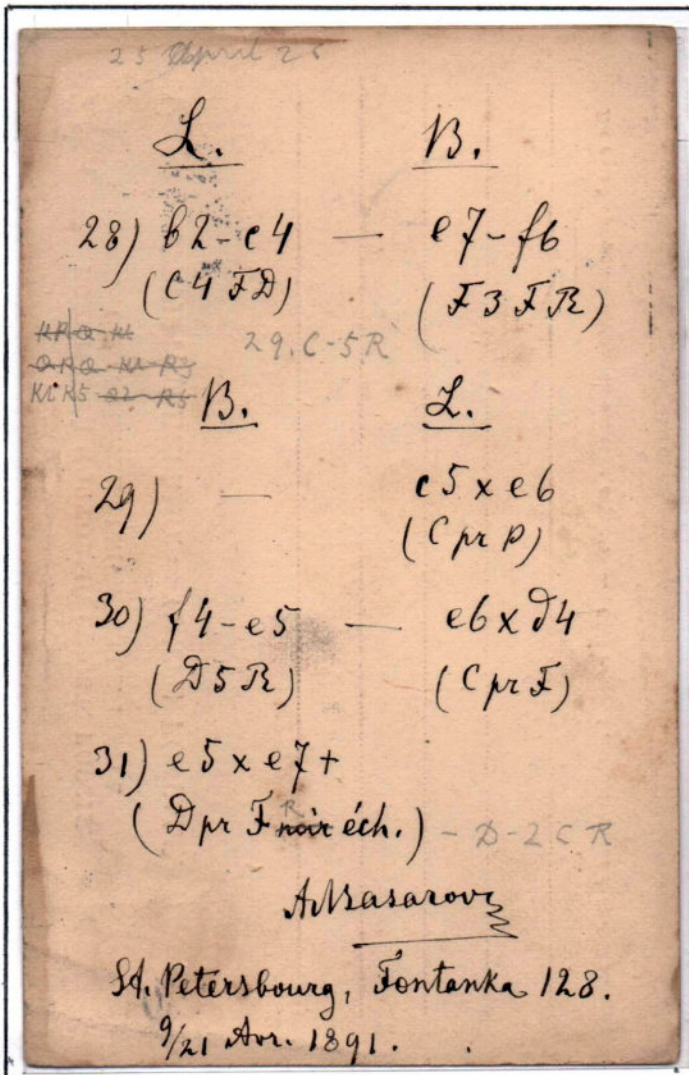 25 April 25
L. B.
28) b2-c4 — e7-f6
(C4FD) (F3FR)
29. C-5R
B. L.
29) — c5xe6
(C pr P)
30) f4-e5 — e6xd4
(D5R) (C pr F)
31) e5xe7+
(D pr F R éch.) - D-2CR
St. Petersbourg, Fontanka 128.
9/21 Avr. 1891.